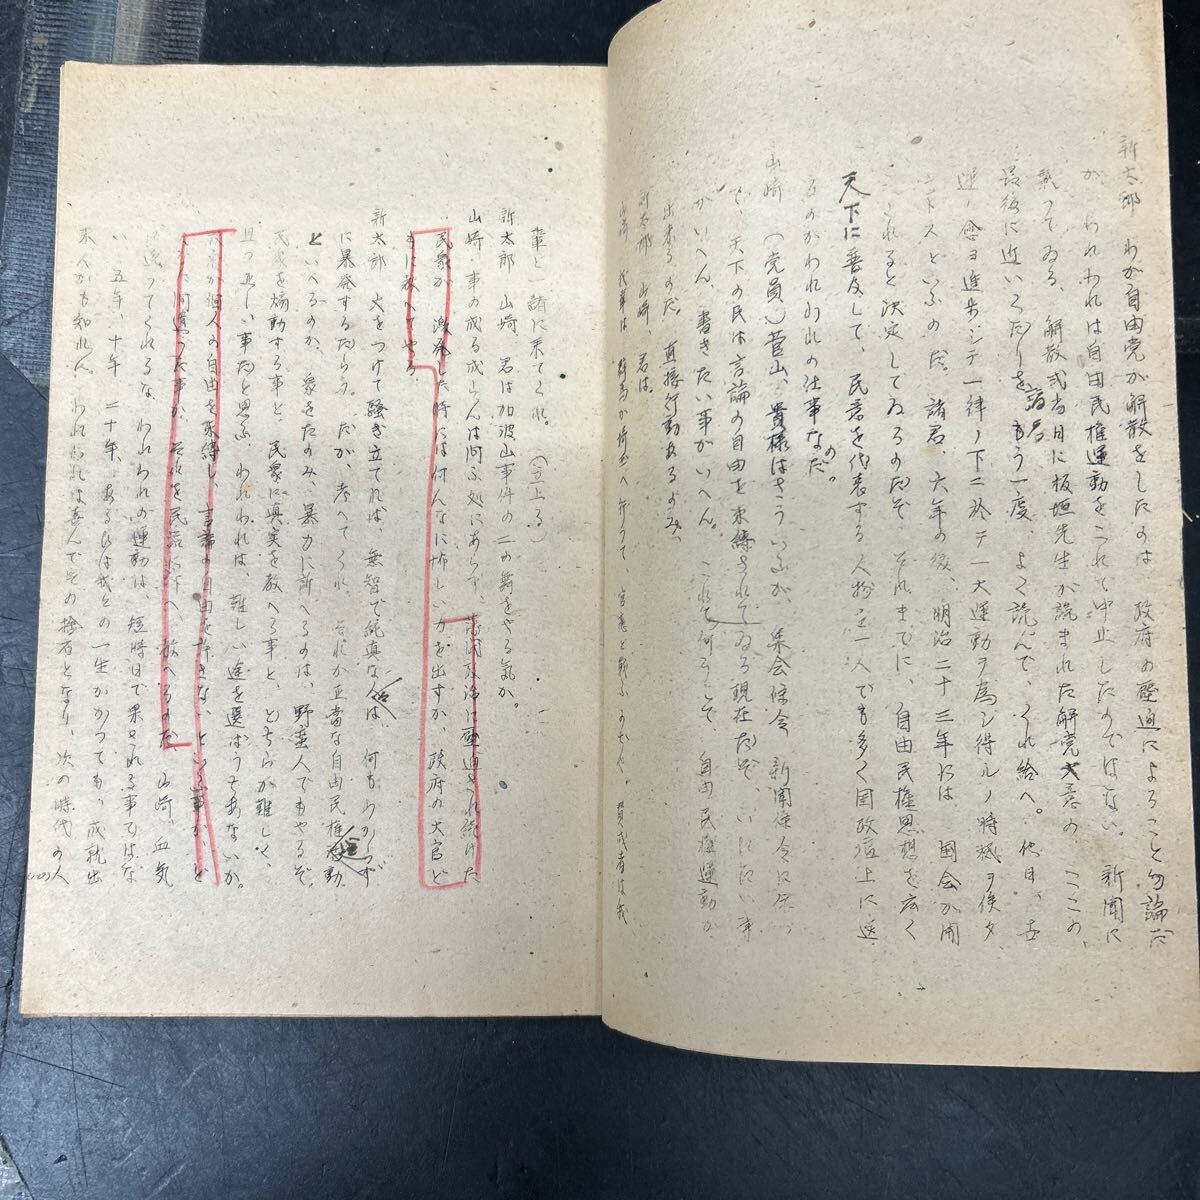 新太郎 わが自由党が解散をしたのは 政府の圧迫によること勿論だ
が われわれは自由民権運動をこれで中止したのではない。新聞に
載つてゐる、解散式当日に板垣先生が読まれた解党大意の ここの、
最後に近いくだりを 諸君 もう一度、よく読んで、くれ給へ。他日、吾
運 愈ヨ進歩シテ一律ノ下ニ於テ一大運動ヲ為シ得ルノ時機ヲ俟タ
ントスといふのだ。諸君、六年の後、明治二十三年には 国会が開
これると決定してゐるのだぞ それまでに、自由民権思想を広く
天下に普及して、民意を代表する人物を一人でも多く国政壇上に送
るのがわれわれの仕事なのだ。
山崎 (党員)菅山、貴様はさういふが、集会條令 新聞條令に
で、天下の民は言論の自由を束縛されてゐる現在だぞ、いひたい事
がいへん、書きたい事がいへん。これで何うして、自由民権運動が
出来るのだ。直接行動あるのみ。
新太郎 山崎、君は。
山崎 代輩は 群馬か埼玉へ行つて、官憲と戦ふのだ 賛成者は我
輩と一諸に来てくれ。(立上る)
新太郎 山崎、君は加波山事件の二の舞をやる気か。
山崎 事の成る成らんは問ふ処にあらず、圧迫され続けた
民衆が、激発した時には何んなに怖しい力を出すか、政府の大官ど
もに教へてやる。
新太郎 火をつけて騒ぎ立てれば、無智で純真な人は 何もわからず
に暴発するだらう。だが、考へてくれ、それが正当な自由民権運動
といへるのか、衆をたのみ、暴力に訴へるのは、野蛮人でもやるぞ。
民衆を煽動する事と、民衆に真実を教へる事と、どちらが難しく、
且つ正しい事だと思ふ われわれは、難しい途を選ばうであないか。
個人の自由を束縛し、言論の自由を許さない、といふ事が、ど
間違つた事か、それを民衆に教へるのだ 山崎、血気
逸つてくれるな、われわれの運動は、短時日で果される事ではな
い、五年、十年 二十年、あるひは我々の一生かかつても、成就出
来んかも知れん、われわれは喜んでその捨石となり、次の時代の人